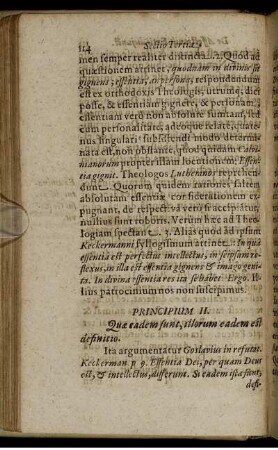 114 Sectio Tertia,
men semper realiter distincta. 2. Quod ad
quæstionem attinet, quodnam in divinis sit
gignens; essentia, an persona, respondendum
est ex orthodoxis Theologis, utrumq; dici
posse, & essentiam gignere, & personam,
essentiam verò non absolute sumtam, sed
cum personalitate, adeoque relatè, qua-
tenus singulari subsistendi modo determi-
nata est, non obstante, quod quidam Calvi-
nianorum propter illam locutionem: Essen-
tia gignit. Theologos Lutheranos reprehen-
dunt. Quorum quidem rationes saltem
absolutam essentiæ considerationem ex-
pugnant, de respectiva verò suscipi sum-
nustius sunt robore. Verùm hæc ad Theo-
logiam spectant. 3. Alias quod ad ipsum
Keckermanni syllogismum attinet: In quâ
essentiâ est perfectus intellectus, in seipsum re-
flexus, in illa est essentia gignens & imago geni-
ta. In divina essentia res ita se habet. Ergo. Il-
lius patrocinium nos non suscipimus.
PRINCIPIUM II.
Quæ eadem sunt, illorum eadem est
definitio.
Ita argumentatur Goslavius in refutat.
Keckerman. p. 9. Essentia Dei, per quam Deus
est, & intellectus, differunt. Si eadem ista sunt,
defi-